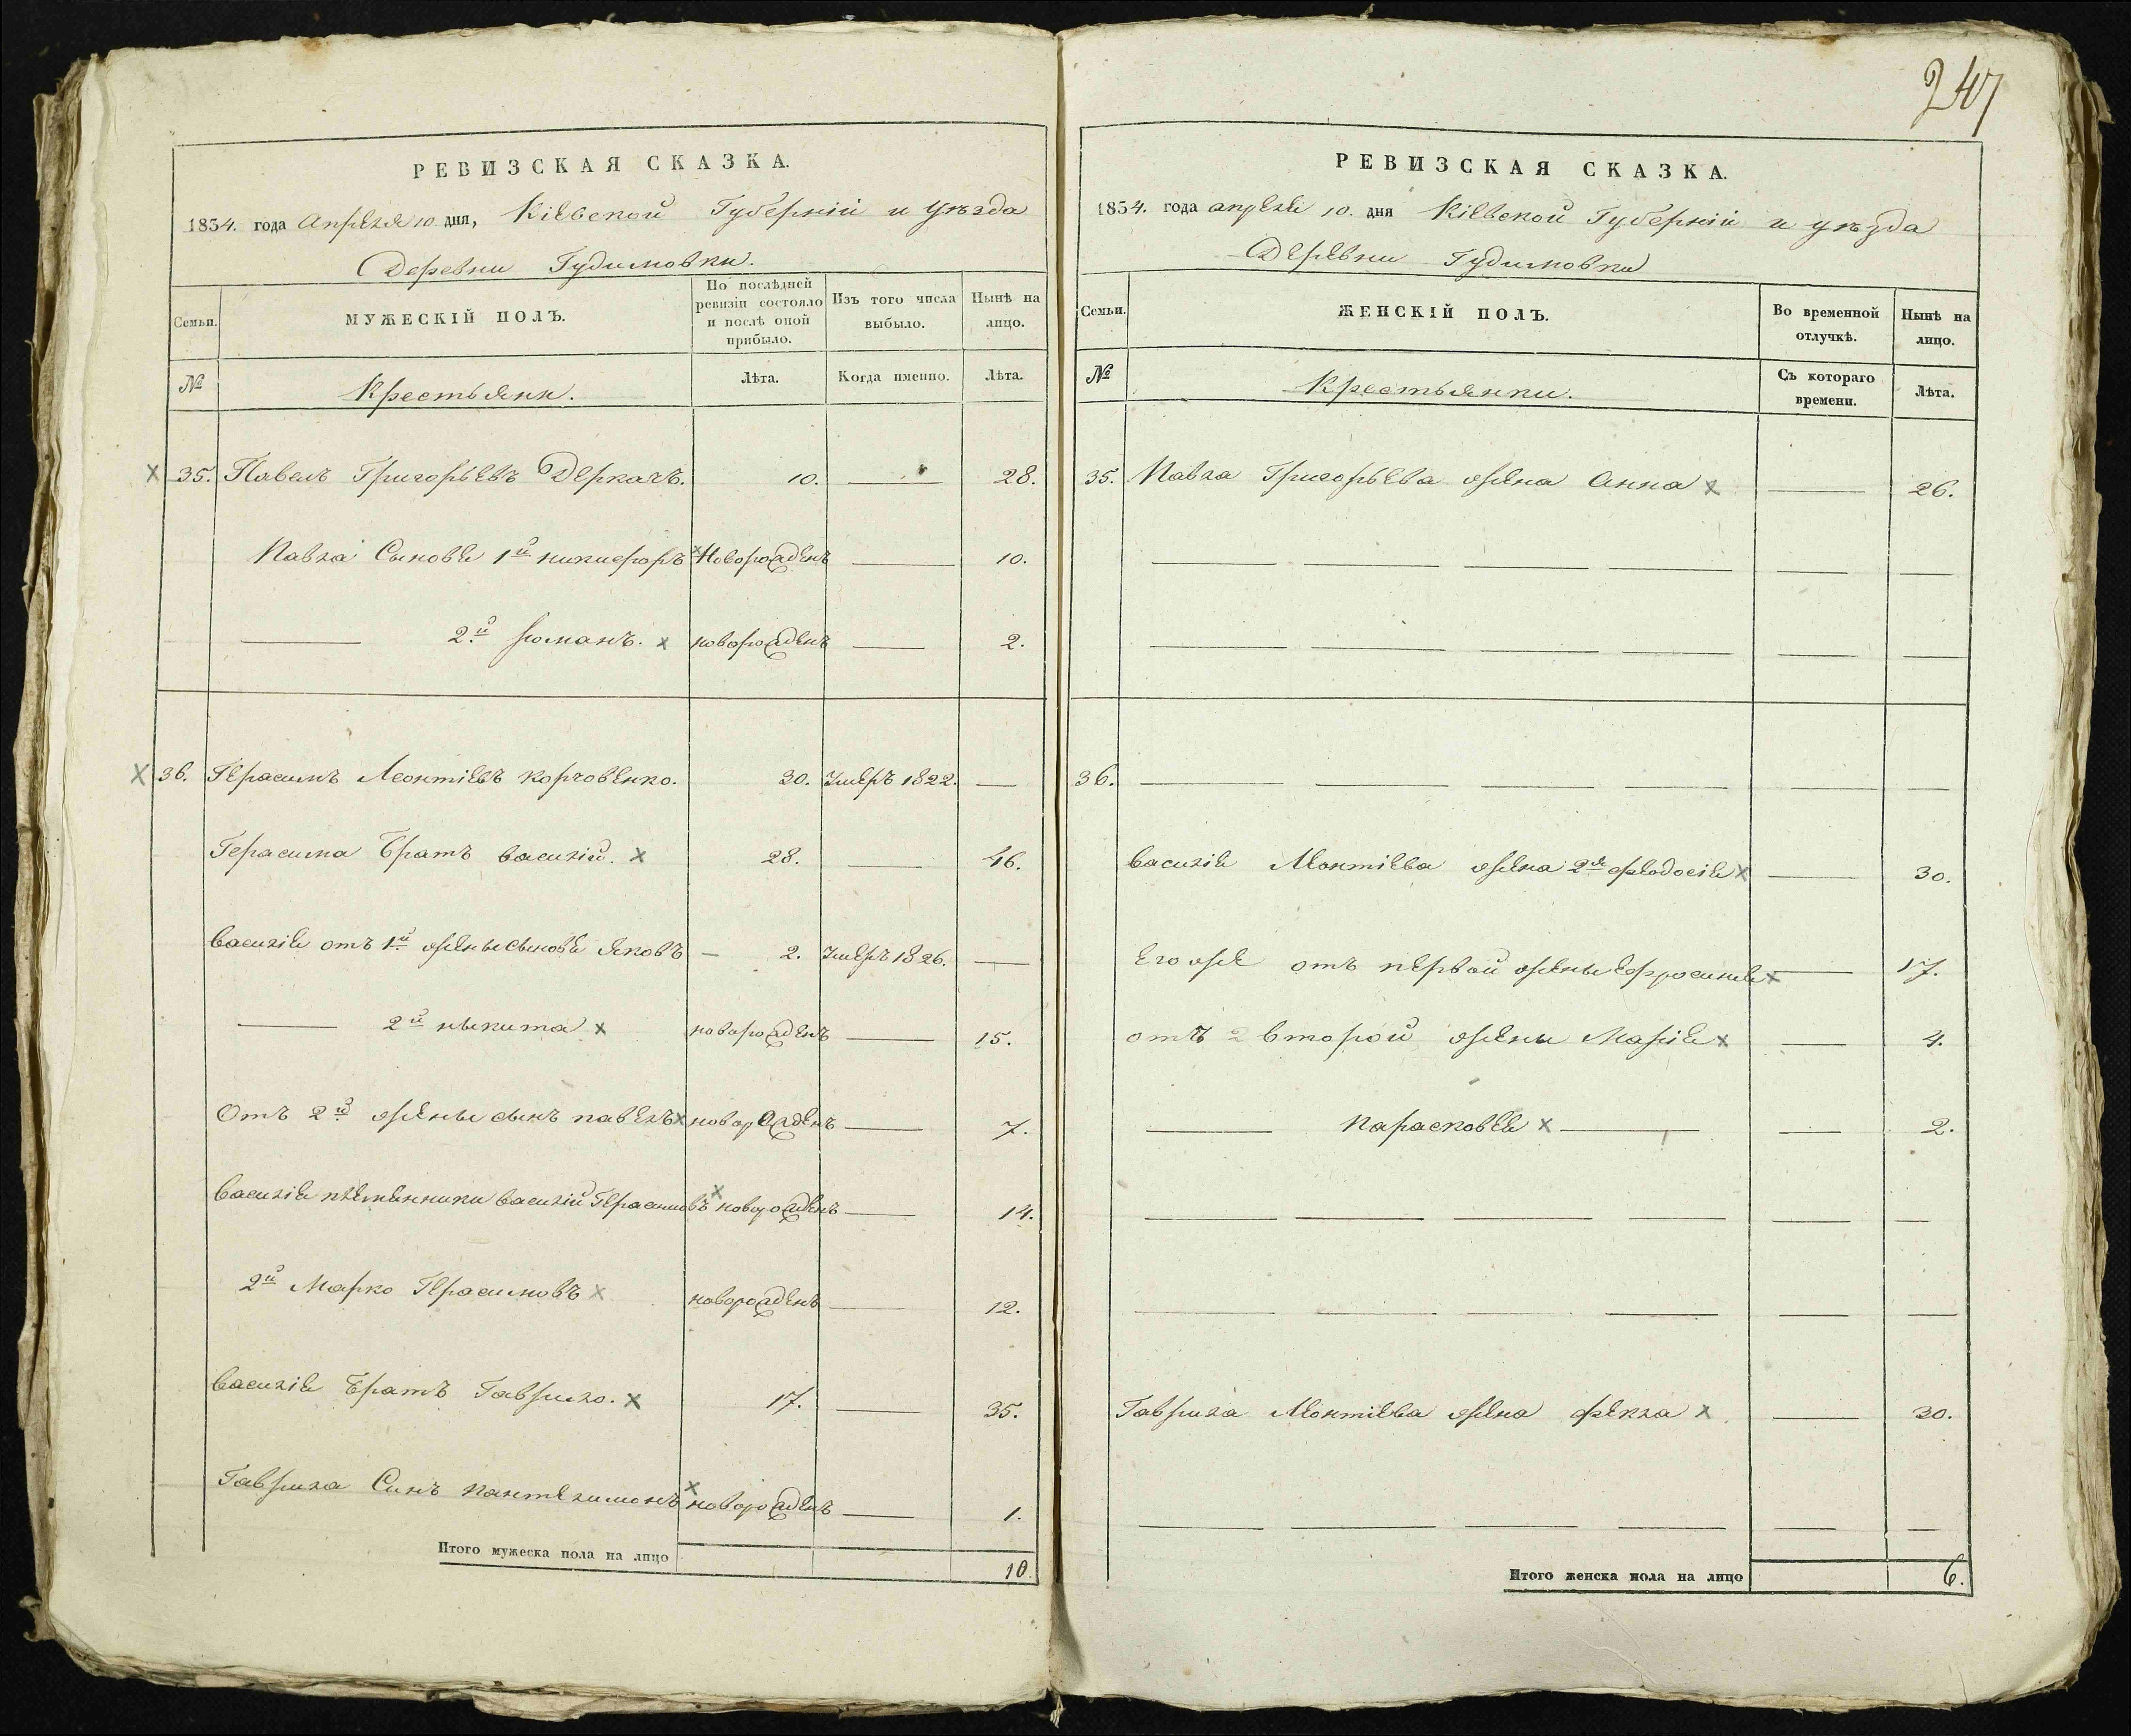 РЕВИЗСКАЯ СКАЗКА.
1834. года Апреля 10 дня, Кіевской Губерніи и уѣзда
Деревни Гудимовки.
Семьи.
МУЖЕСКІЙ ПОЛЪ.
По послѣдней ревизіи состояло и послѣ оной прибыло.
Изъ того числа выбыло.
Нынѣ на лицо.
№ Крестьяни. Лѣта. Когда именно. Лѣта.
х 35. Павелъ Григорьевъ Деркачъ. 10. — 28.
Павла Сыновья 1й никифоръ х Новорожденъ — 10.
— 2й романъ. х новорожденъ — 2.
х 36. Герасимъ Леонтіевъ Корчовенко. 30. Умеръ 1822. —
Герасима Братъ василій. х 28. — 46.
василія отъ 1й жены сыновья яковъ — 2. Умеръ 1826. —
— 2й ныкита х новорожденъ — 15.
Отъ 2й жены сынъ павелъ х новорожденъ — 7.
василія племянники василій Герасимовъ х новорожденъ — 14.
2й Марко Герасимовъ х новорожденъ — 12.
василія Братъ Гаврило. х 17. — 35.
Гаврила Синъ пантелимонъ х новорожденъ — 1.
Итого мужеска пола на лицо 10.
247
РЕВИЗСКАЯ СКАЗКА.
1834. года апреля 10. дня Кіевской Губерніи и уѣзда
Деревни Гудимовки
Семьи.
ЖЕНСКІЙ ПОЛЪ.
Во временной отлучкѣ.
Нынѣ на лицо.
№ Крестьянки. Съ котораго времени. Лѣта.
35. Павла Григорьева жена Анна х — 26.
— — — — — —
— — — — — —
36. — — — — — —
василія Леонтіева жена 2я феодосія х — 30.
его же отъ первой жены Ефросинія х — 17.
отъ 2 второй жены Марія х — 4.
— Парасковея х — — 2.
— — — — — —
— — — — —
Гаврила Леонтіева жена фекла х — 30.
— — — — — —
Итого женска пола на лицо 6.